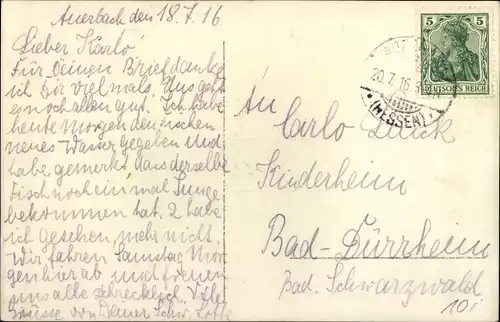 Auerbach den 18.7.16
Lieber Karlo!
Für Deinen Brief danke
ich Dir vielmals. Uns geht
es noch allen gut. Ich habe
heute Morgen den Fischen
neues Wasser gegeben und
habe gemerkt dass derselbe
Fisch noch einmal Junge
bekommen hat. 2 habe
ich gesehen, mehr nicht.
Wir fahren Samstag Mor
gen hier ab und freuen
uns alle schrecklich. Viele
Grüsse von Deiner Schw. Lotte
5 5
DEUTSCHES REICH
20.7.16
(HESSEN)
An
Carlo
Kinderheim
Bad-Dürrheim
Bad. Schwarzwald